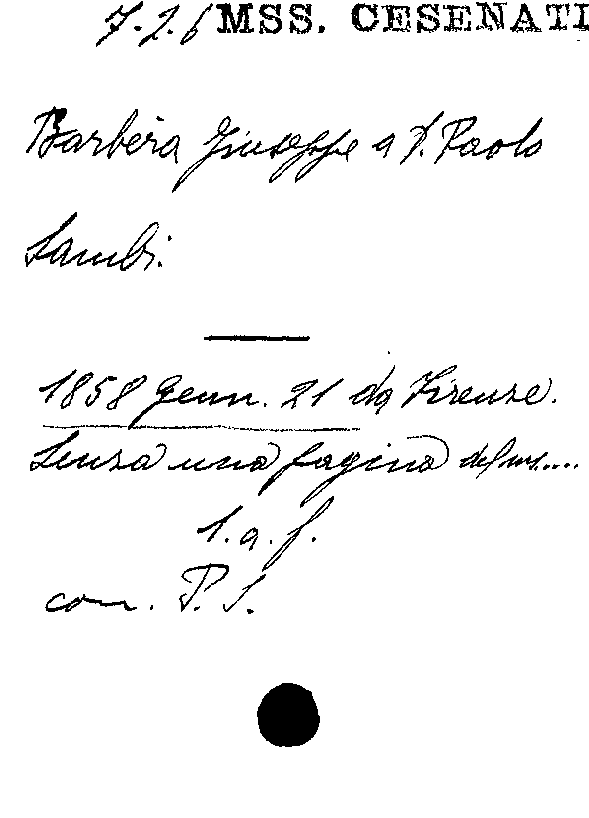 7.2.6 MSS. CESENATI
Barbèra Giuseppe a D. Paolo
Sambi.
1858 Genn. 21 da Firenze.
Senza una pagina del ms....
1. a. f.
con. P. S.